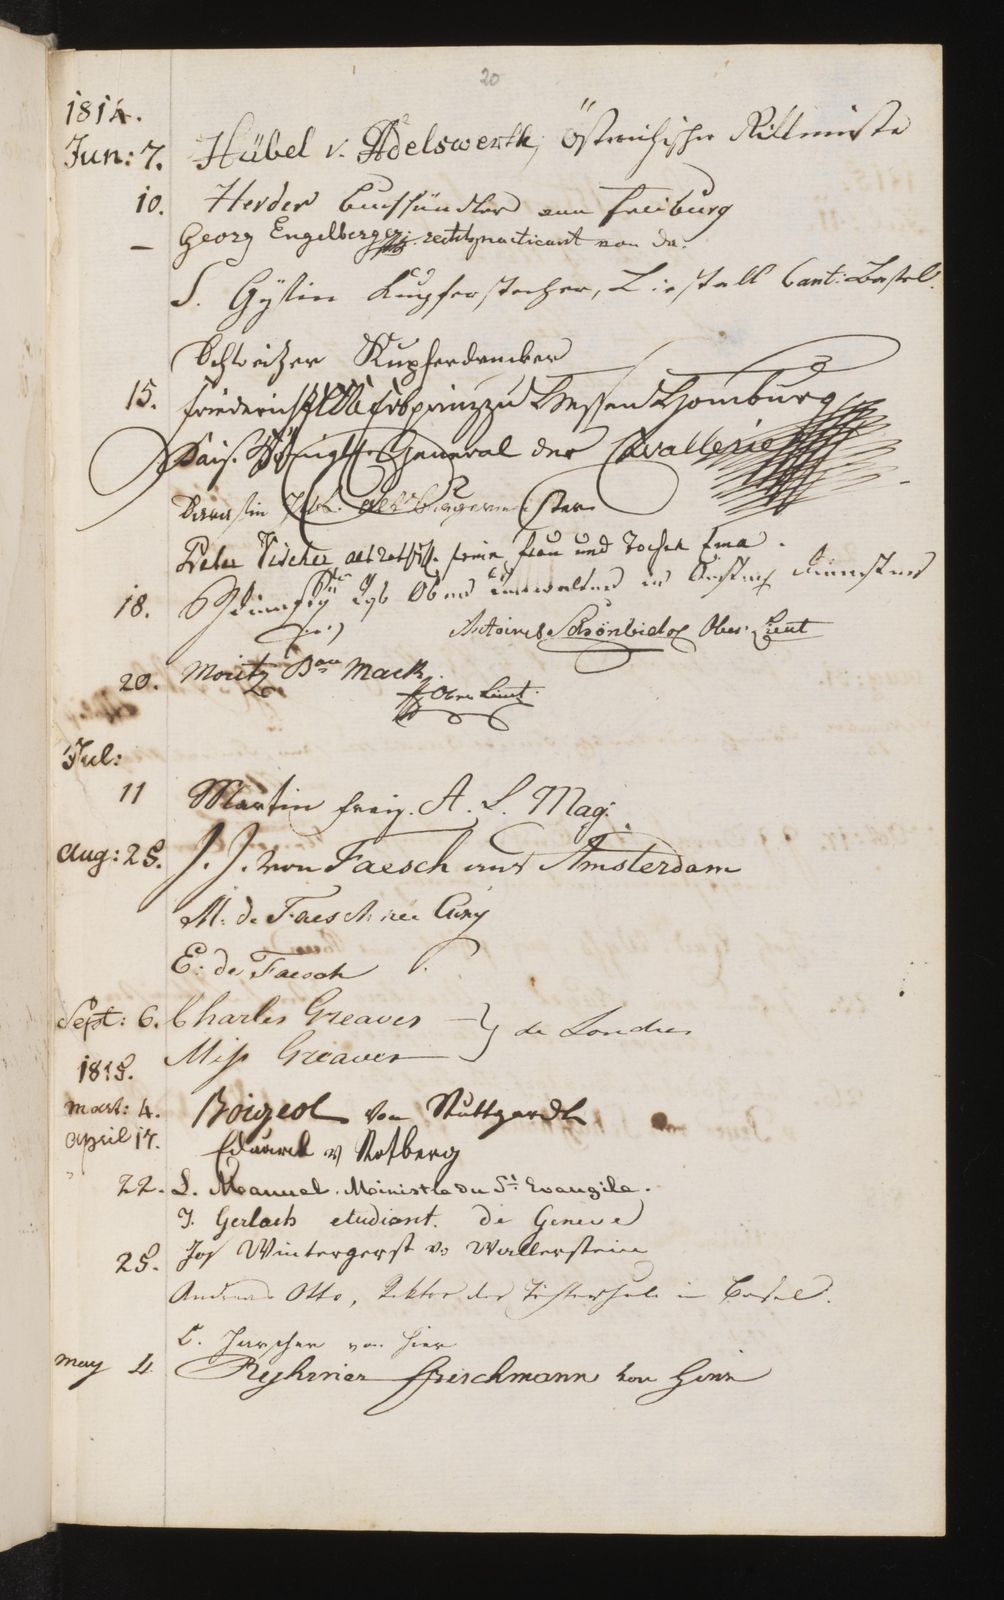 20
1814.
Jun: 7. Hübel v. Adelswerth, Östreichischer Rittmeister
10. Herder Buchhändler von Freiburg
— Georg Engelberger rechtspracticant von da.
S. Gÿsin Kupferstecher, Liestall Cant: Basel.
Schweitzer Kupferdrucker
15. Friederich Erbprinz zu Hessen Homburg
Kais. Königl. General der Cavallerie
Peter Vischer seine Frau und Tochter Ema.
18. Ober
Schönbichl Ober Lieut
20. Moritz Bon Mack
Ober Lieut.
Jul:
11 Martin A. L. Mag.
Aug: 25. J. J. von Faesch aus Amsterdam
M. de Faesch née Cuny
E: de Faesch
Sept: 6. Charles Greaves } de Londres
Miss Greaves
1815.
Mart: 4. Boigeol von Stuttgardt
April 17. Eduard v Rotberg
22. L. Manuel. Ministre du St. Evangile.
J. Gerlach etudiant. de Geneve
25. Jos Wintergerst v. Wallerstein
Andreas Otto, Rektor der Töchterschule in Basel.
von hier
May 4 Ryhiner Frischmann von hier